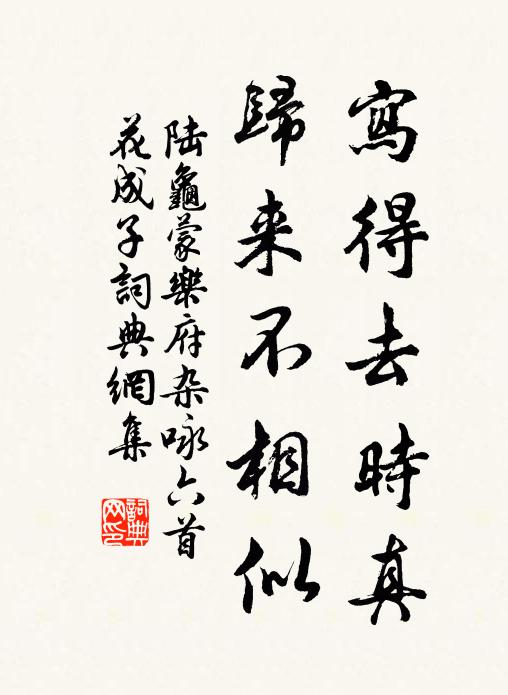 寫得去時真
歸来不相似
陆龜蒙樂府杂咏六首
花成子詞典網集
詞典网印